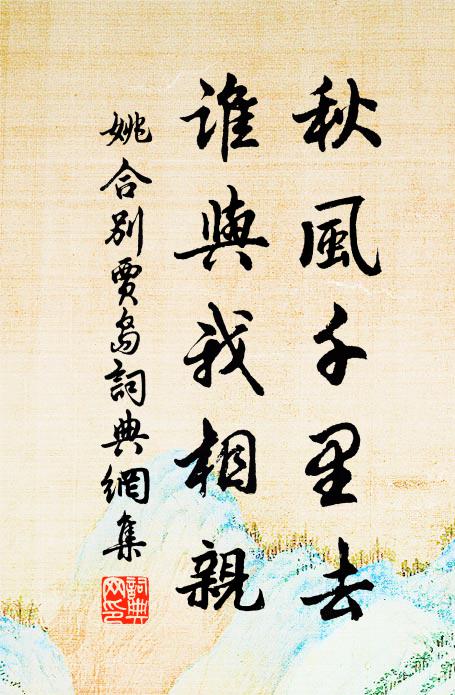 秋風千里去
誰與我相親
姚合別賈島詞典網集
詞典網印